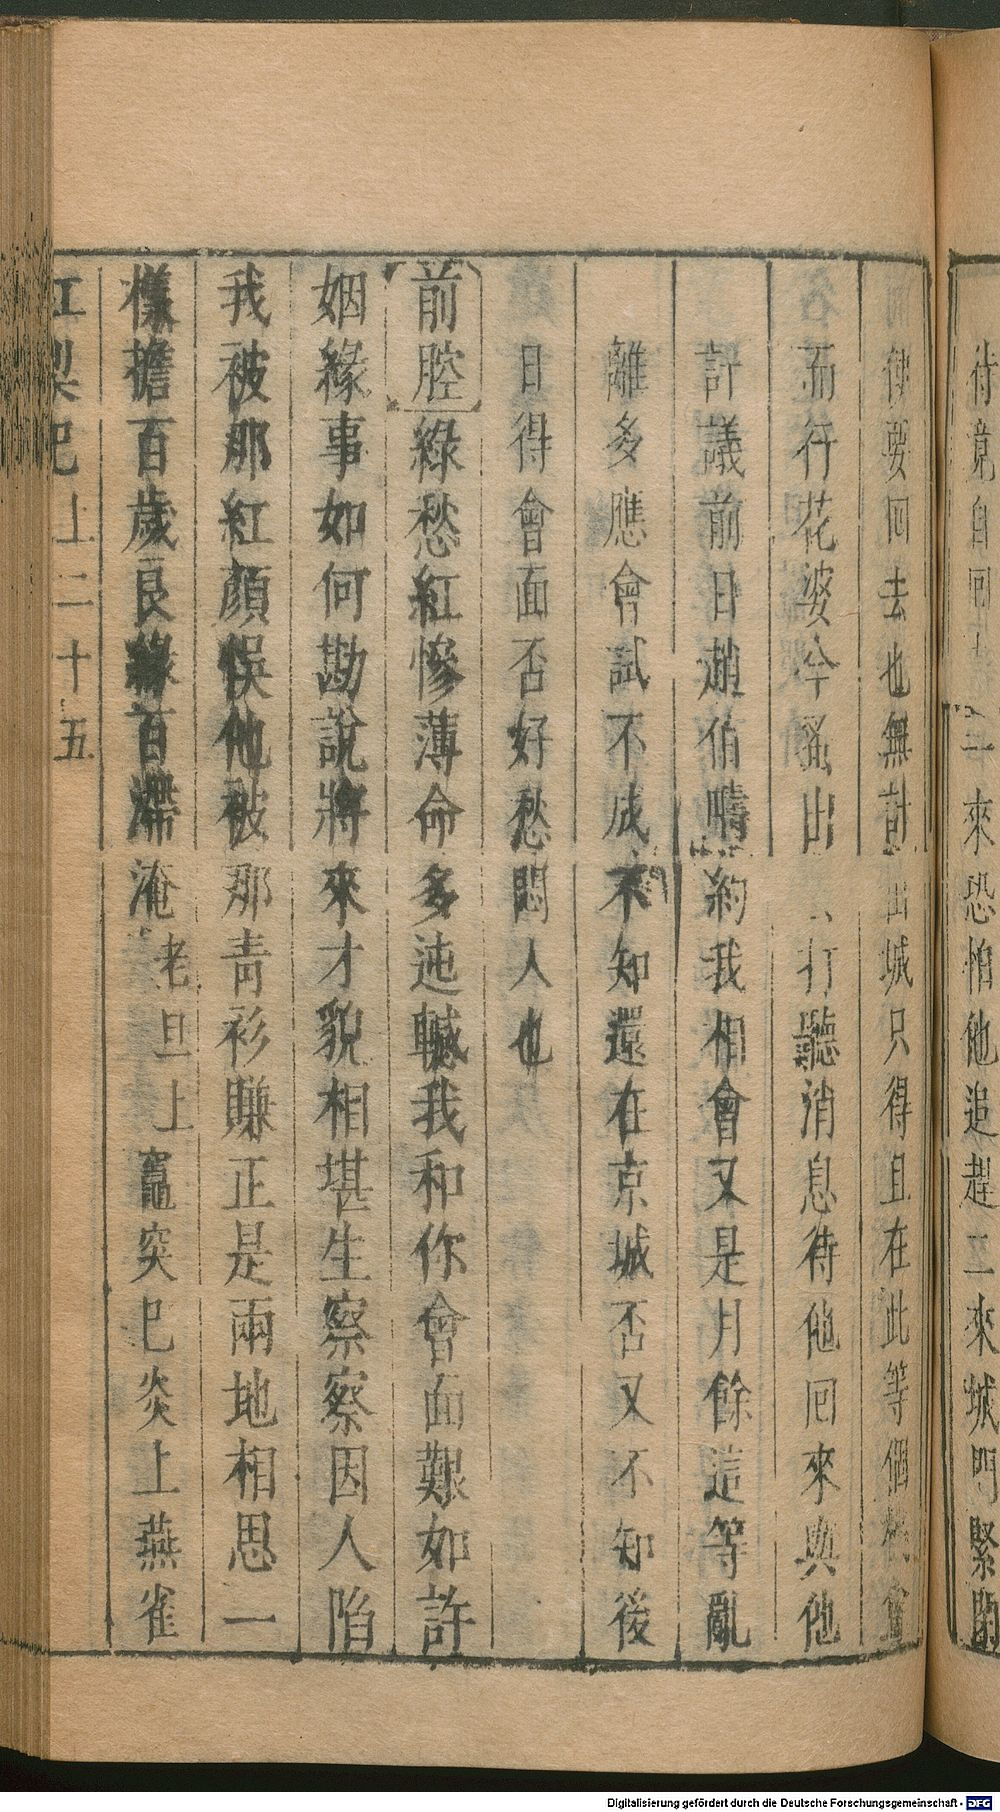 待竟自回
一來恐怕他追趕二來城門緊閉
便要回去也無計出城只得且在此等個機會
而行花婆今蚤出 打聽消息待他回來與他
計議前日趙伯疇約我相會又是月餘這等亂
離多應會試不成不知還在京城否又不知後
日得會面否好愁悶人也
前腔綠愁紅慘薄命多迍轗我和你會面艱如許
姻緣事如何勘說將來才貌相堪生察察因人陷
我被那紅顏悞他被那青衫賺正是兩地相思一
樣擔百歲良緣百滯淹老旦上竈突巳炎上燕雀
紅梨記上二十五
Digitalisierung gefördert durch die Deutsche Forschungsgemeinschaft - DFG